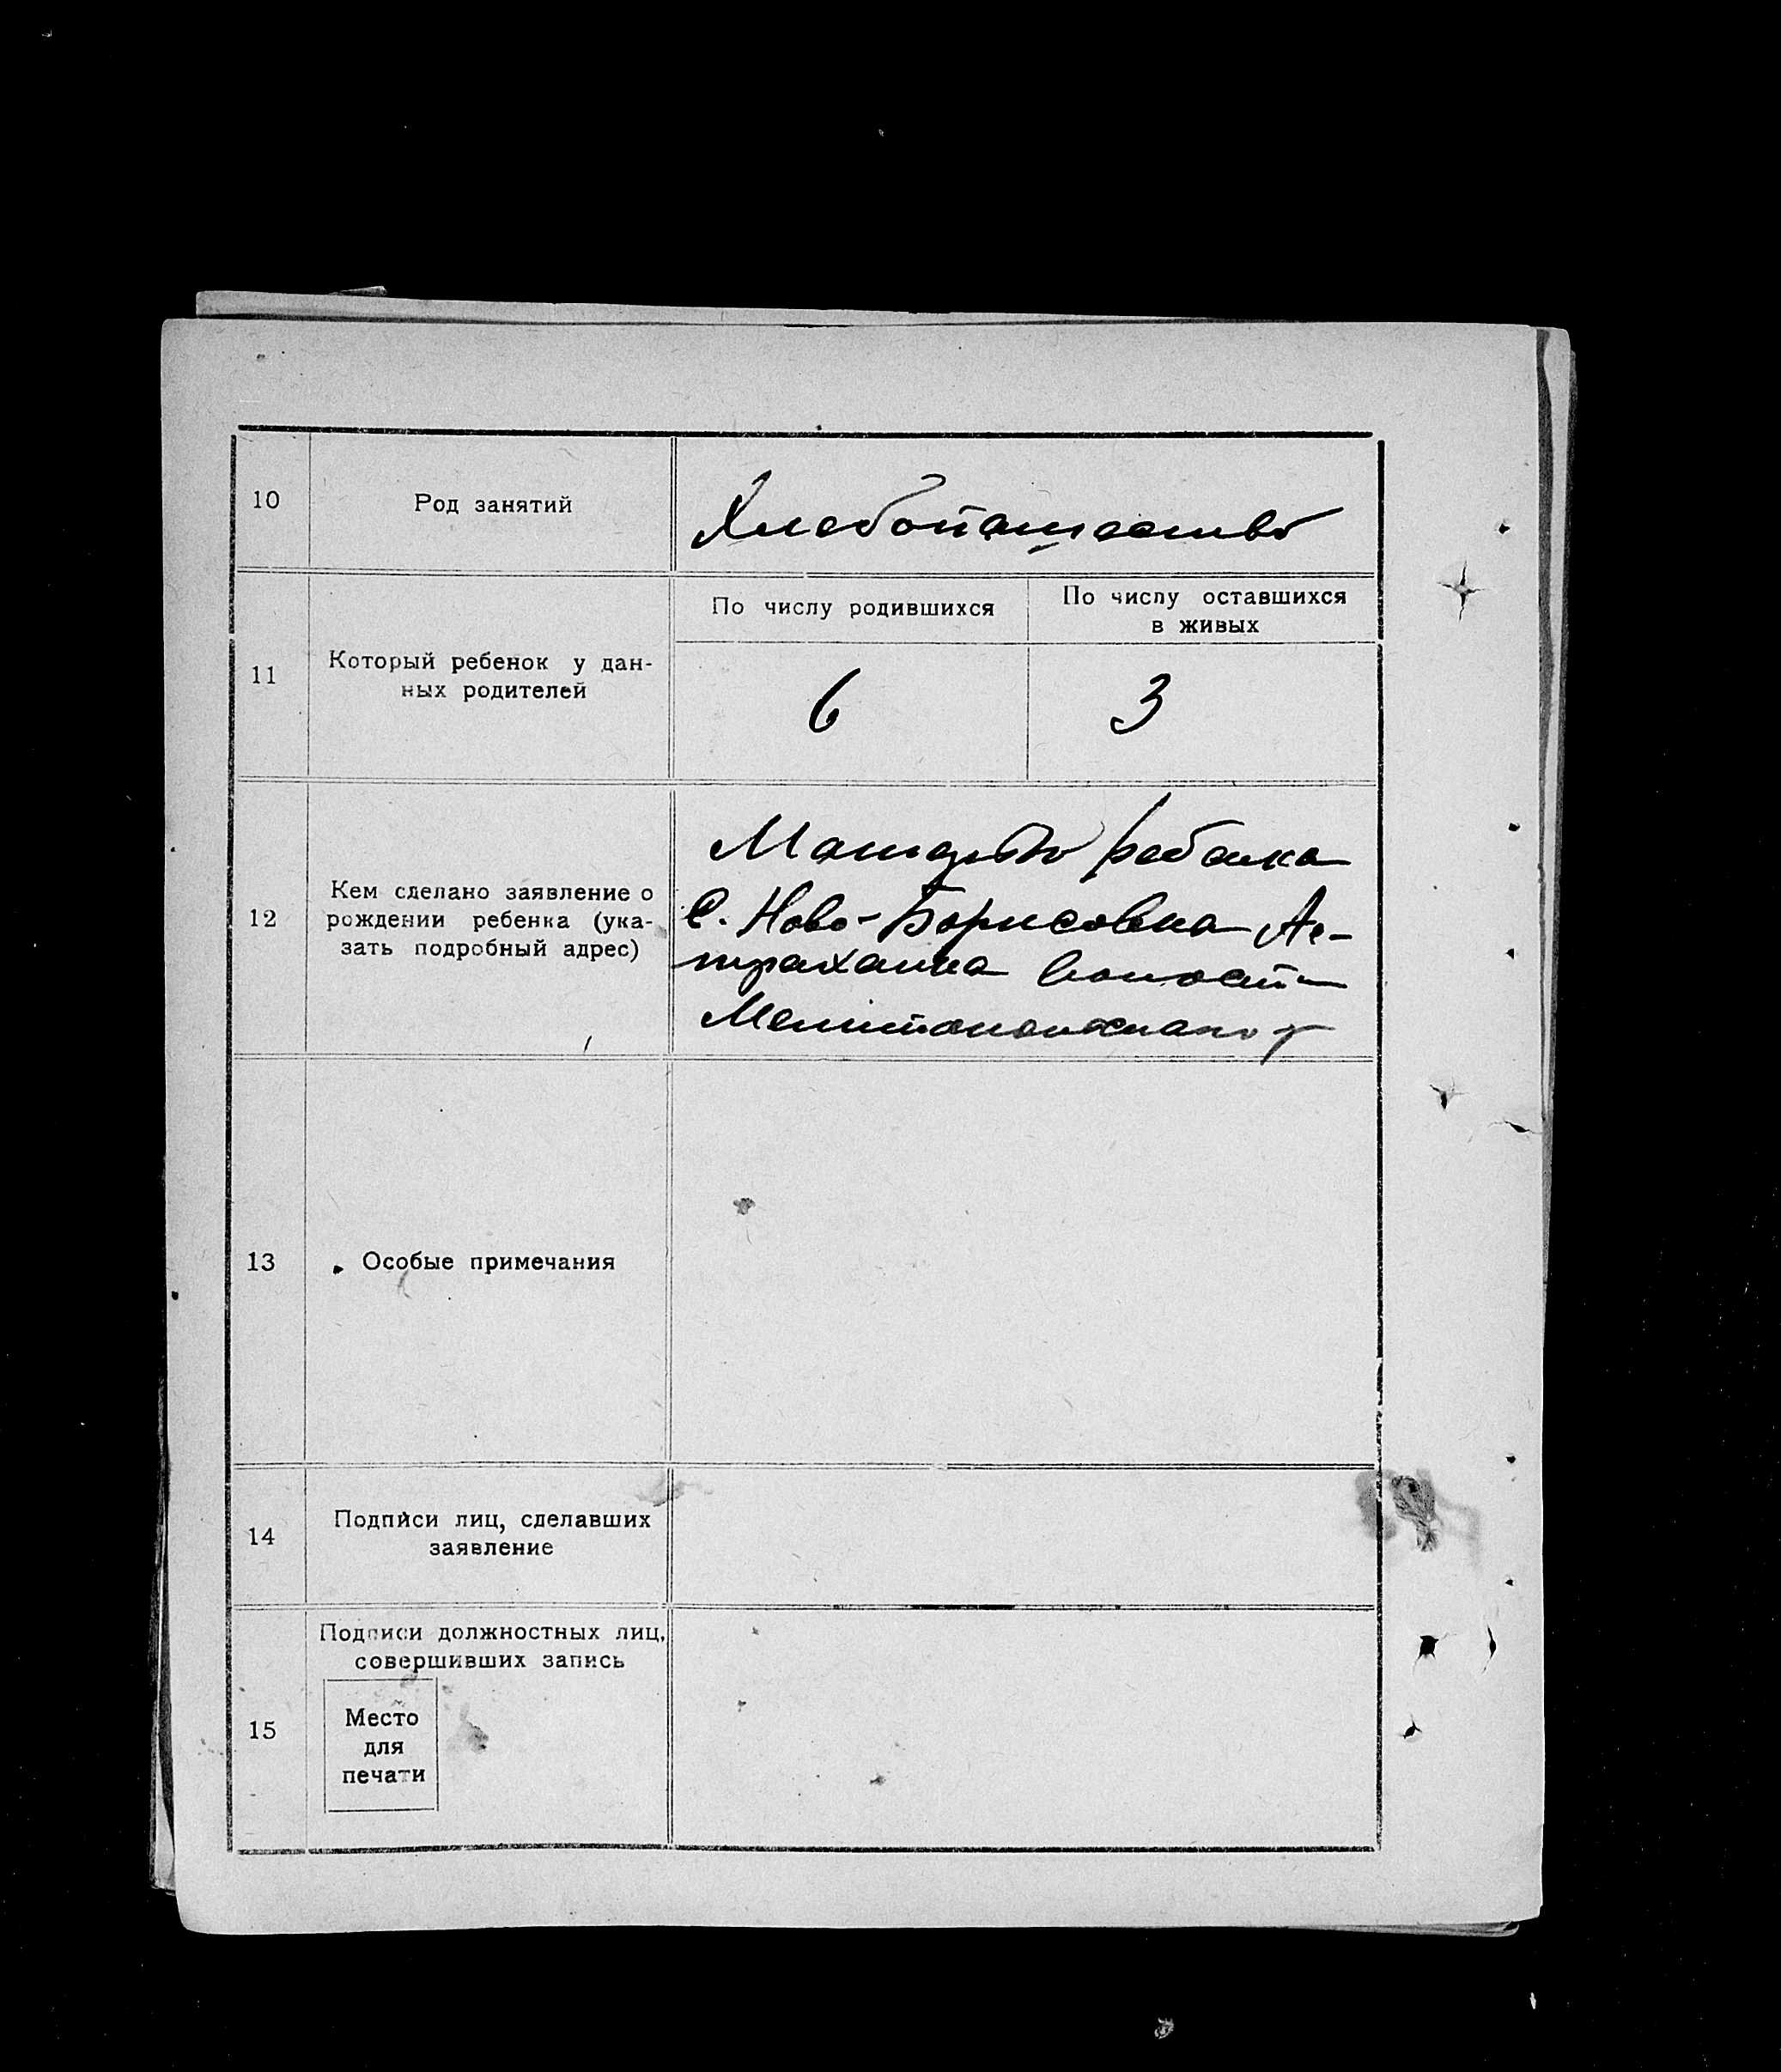 10
Род занятий
Хлебопашество
11
Который ребенок у дан-
ных родителей
По числу родившихся
По числу оставшихся
в живых
6
3
12
Кем сделано заявление о
рождении ребенка (ука-
зать подробный адрес)
Матерью ребенка
С. Ново-Борисовка Ас-
траханка волости
Мелитопольского у
13
Особые примечания
14
Подписи лиц, сделавших
заявление
15
Подписи должностных лиц,
совершивших запись
Место
для
печати